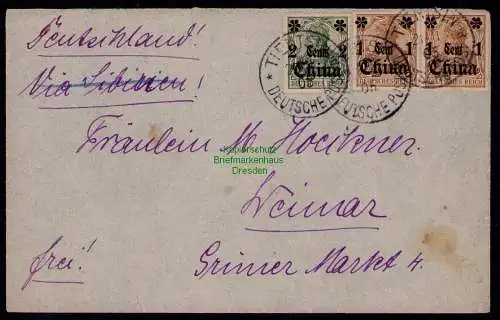 Deutschland!
Via Sibirien!
2 Cent China
1 Cent China
1 Cent China
DEUTSCHE POST
DEUTSCHE POST
Kopierschutz
Briefmarkenhaus
Dresden
Fräulein M.
Weimar
frei!
Grüner Markt 4.